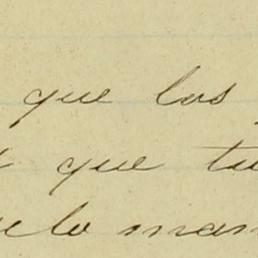 que los
que tu
elo man